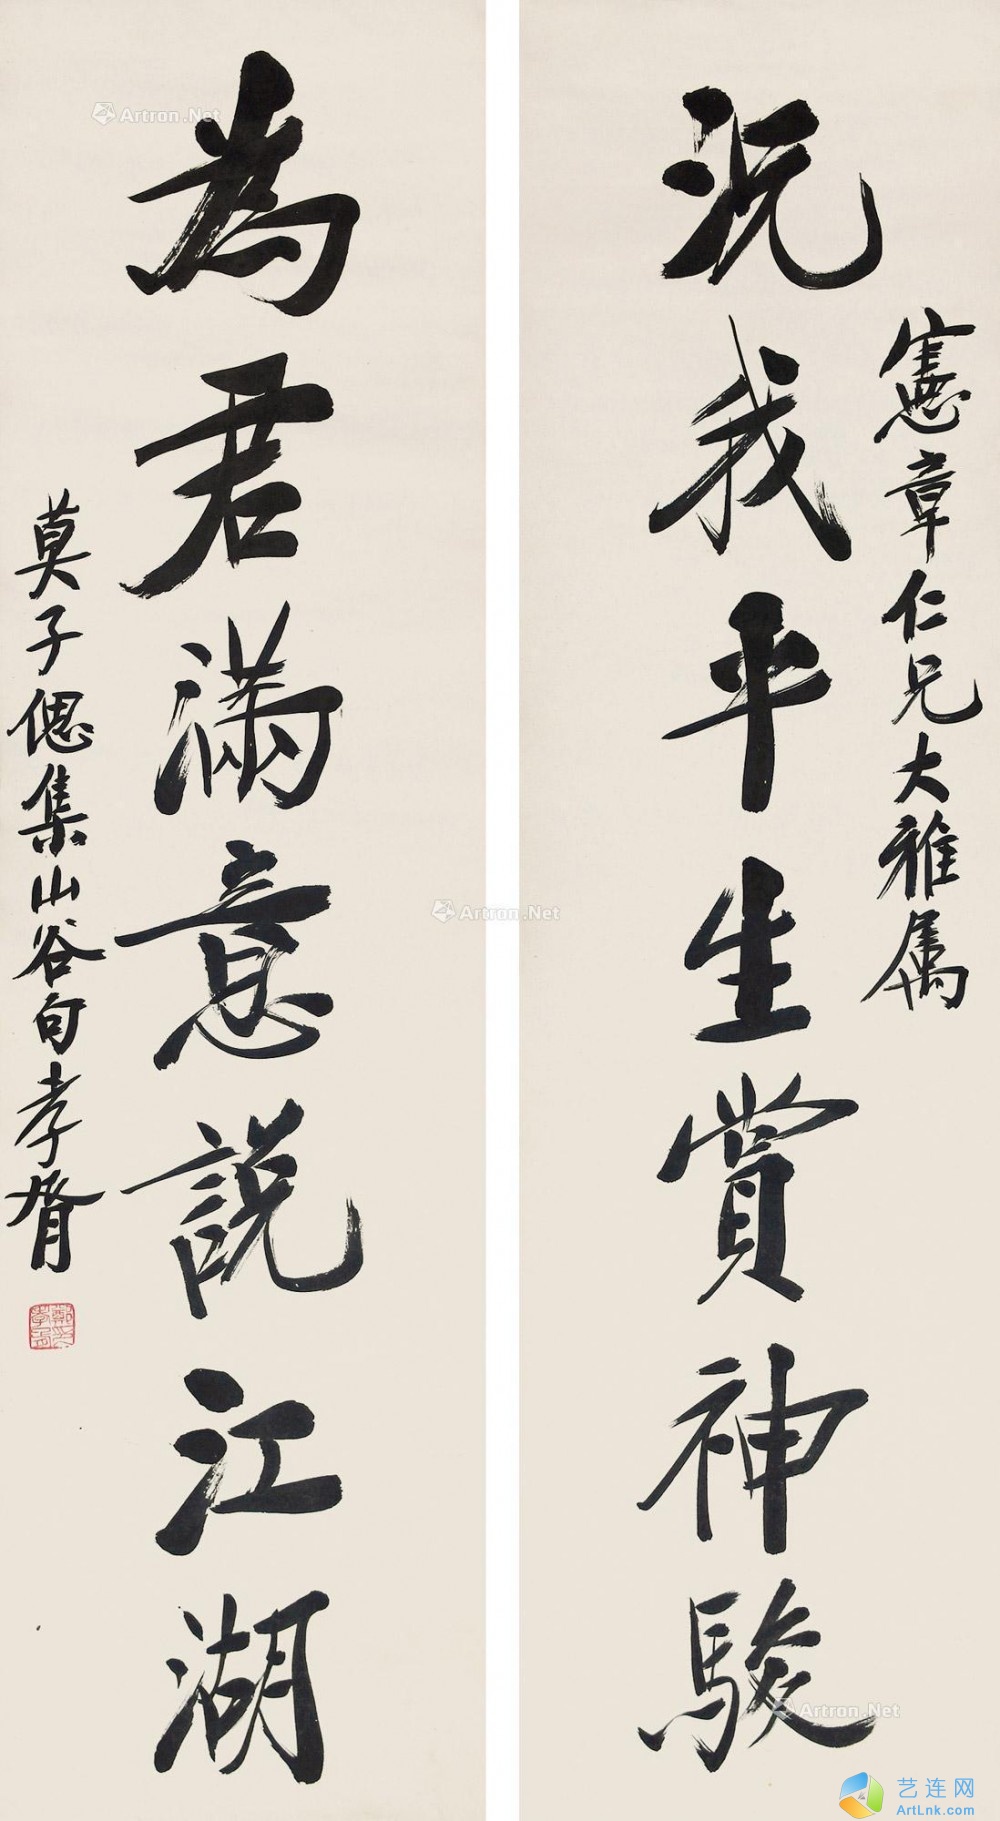 憲章仁兄大雅属
況我平生賞神駿
為君滿意說江湖
莫子偲集山谷句孝胥
鄭孝胥
Artron.Net
Artron.Net
Artron.Net
艺连网
ArtLnk.com